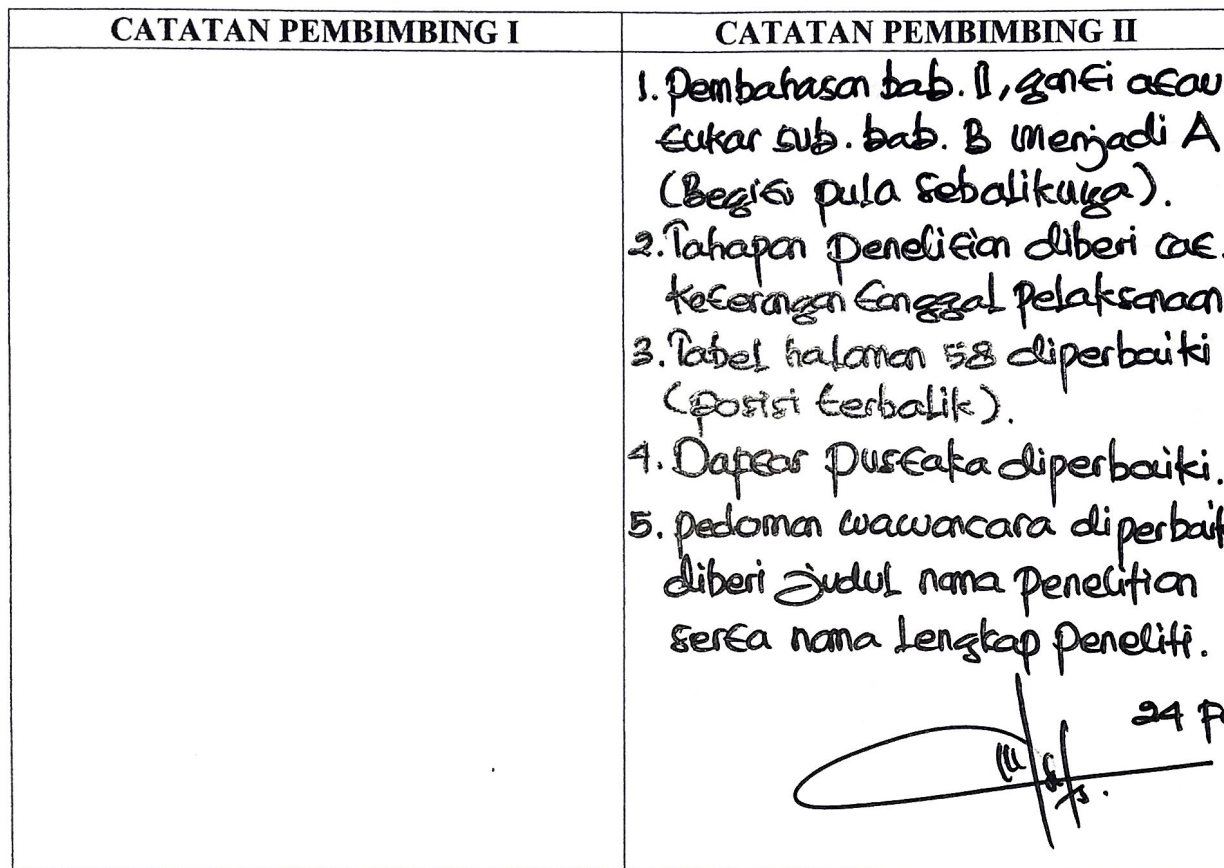 CATATAN PEMBIMBING I
CATATAN PEMBIMBING II
1. Pembahasan bab. II, ganti atau
tukar sub. bab. B menjadi A
(Begitu pula sebaliknya).
2. Tahapan Penelitian diberi cat.
keterangan tanggal pelaksanaan
3. Tabel halaman 58 diperbaiki
(posisi terbalik).
4. Daftar Pustaka diperbaiki.
5. pedoman wawancara diperbaik
diberi judul nama Penelitian
serta nama Lengkap Peneliti.
24